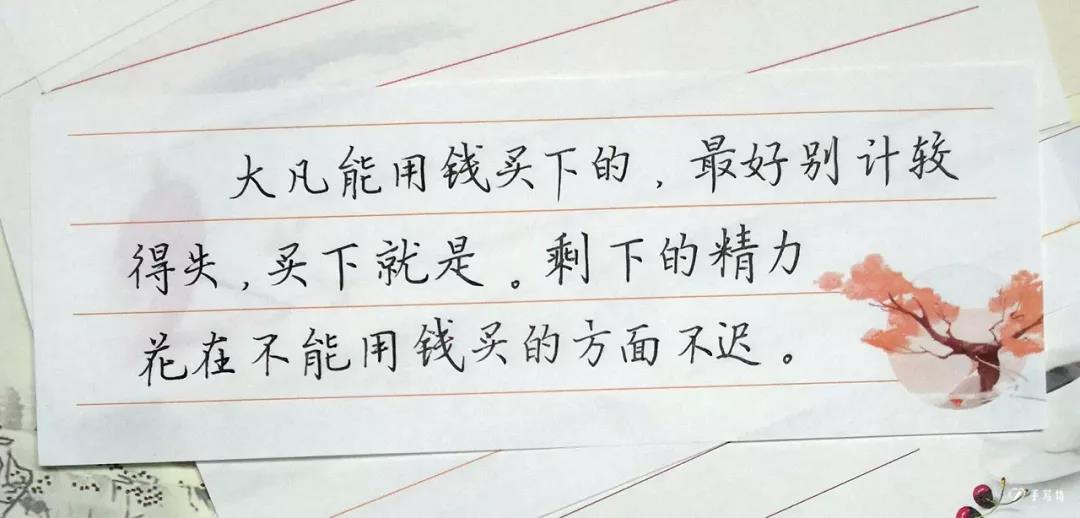 大凡能用钱买下的，最好别计较
得失，买下就是。剩下的精力
花在不能用钱买的方面不迟。
手写情